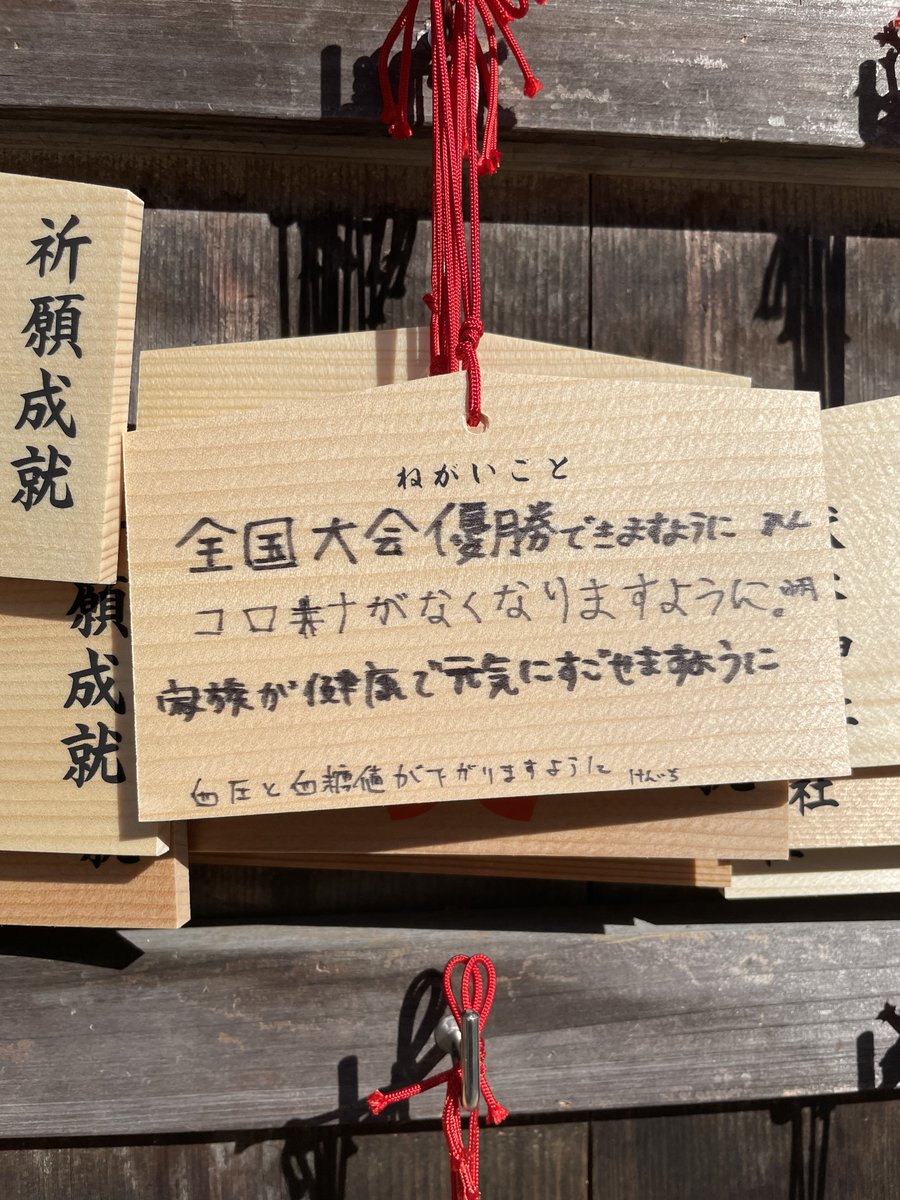 祈願成就
願成就
ねがいごと
全国大会優勝できますように
コロナがなくなりますように。明
家族が健康で元気にすごせますように
血圧と血糖値が下がりますように けんいち
社